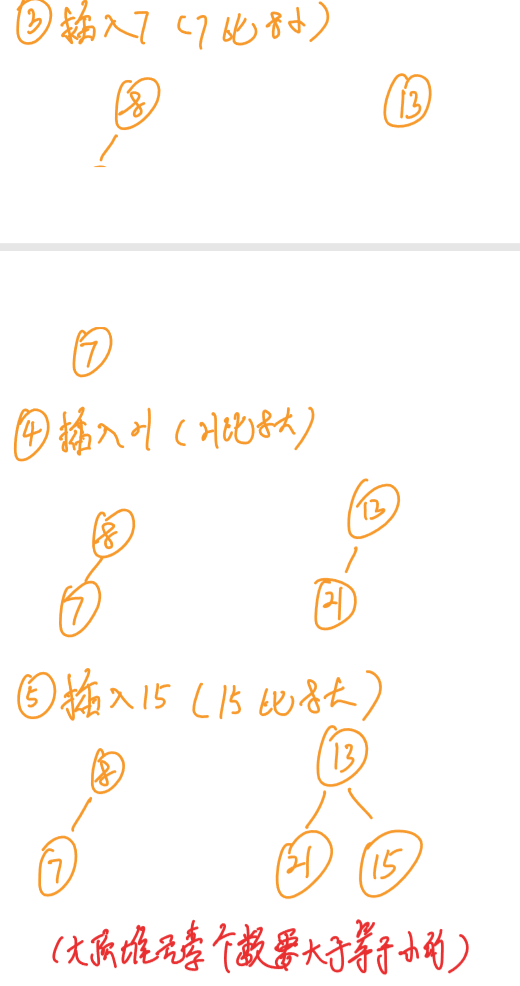 ③插入7（7比8小）
8 13
7
④插入21（21比8大）
8 13
7 21
⑤插入15（15比8大）
8 13
7 21 15
（大顶堆元素个数要大于等于小的）